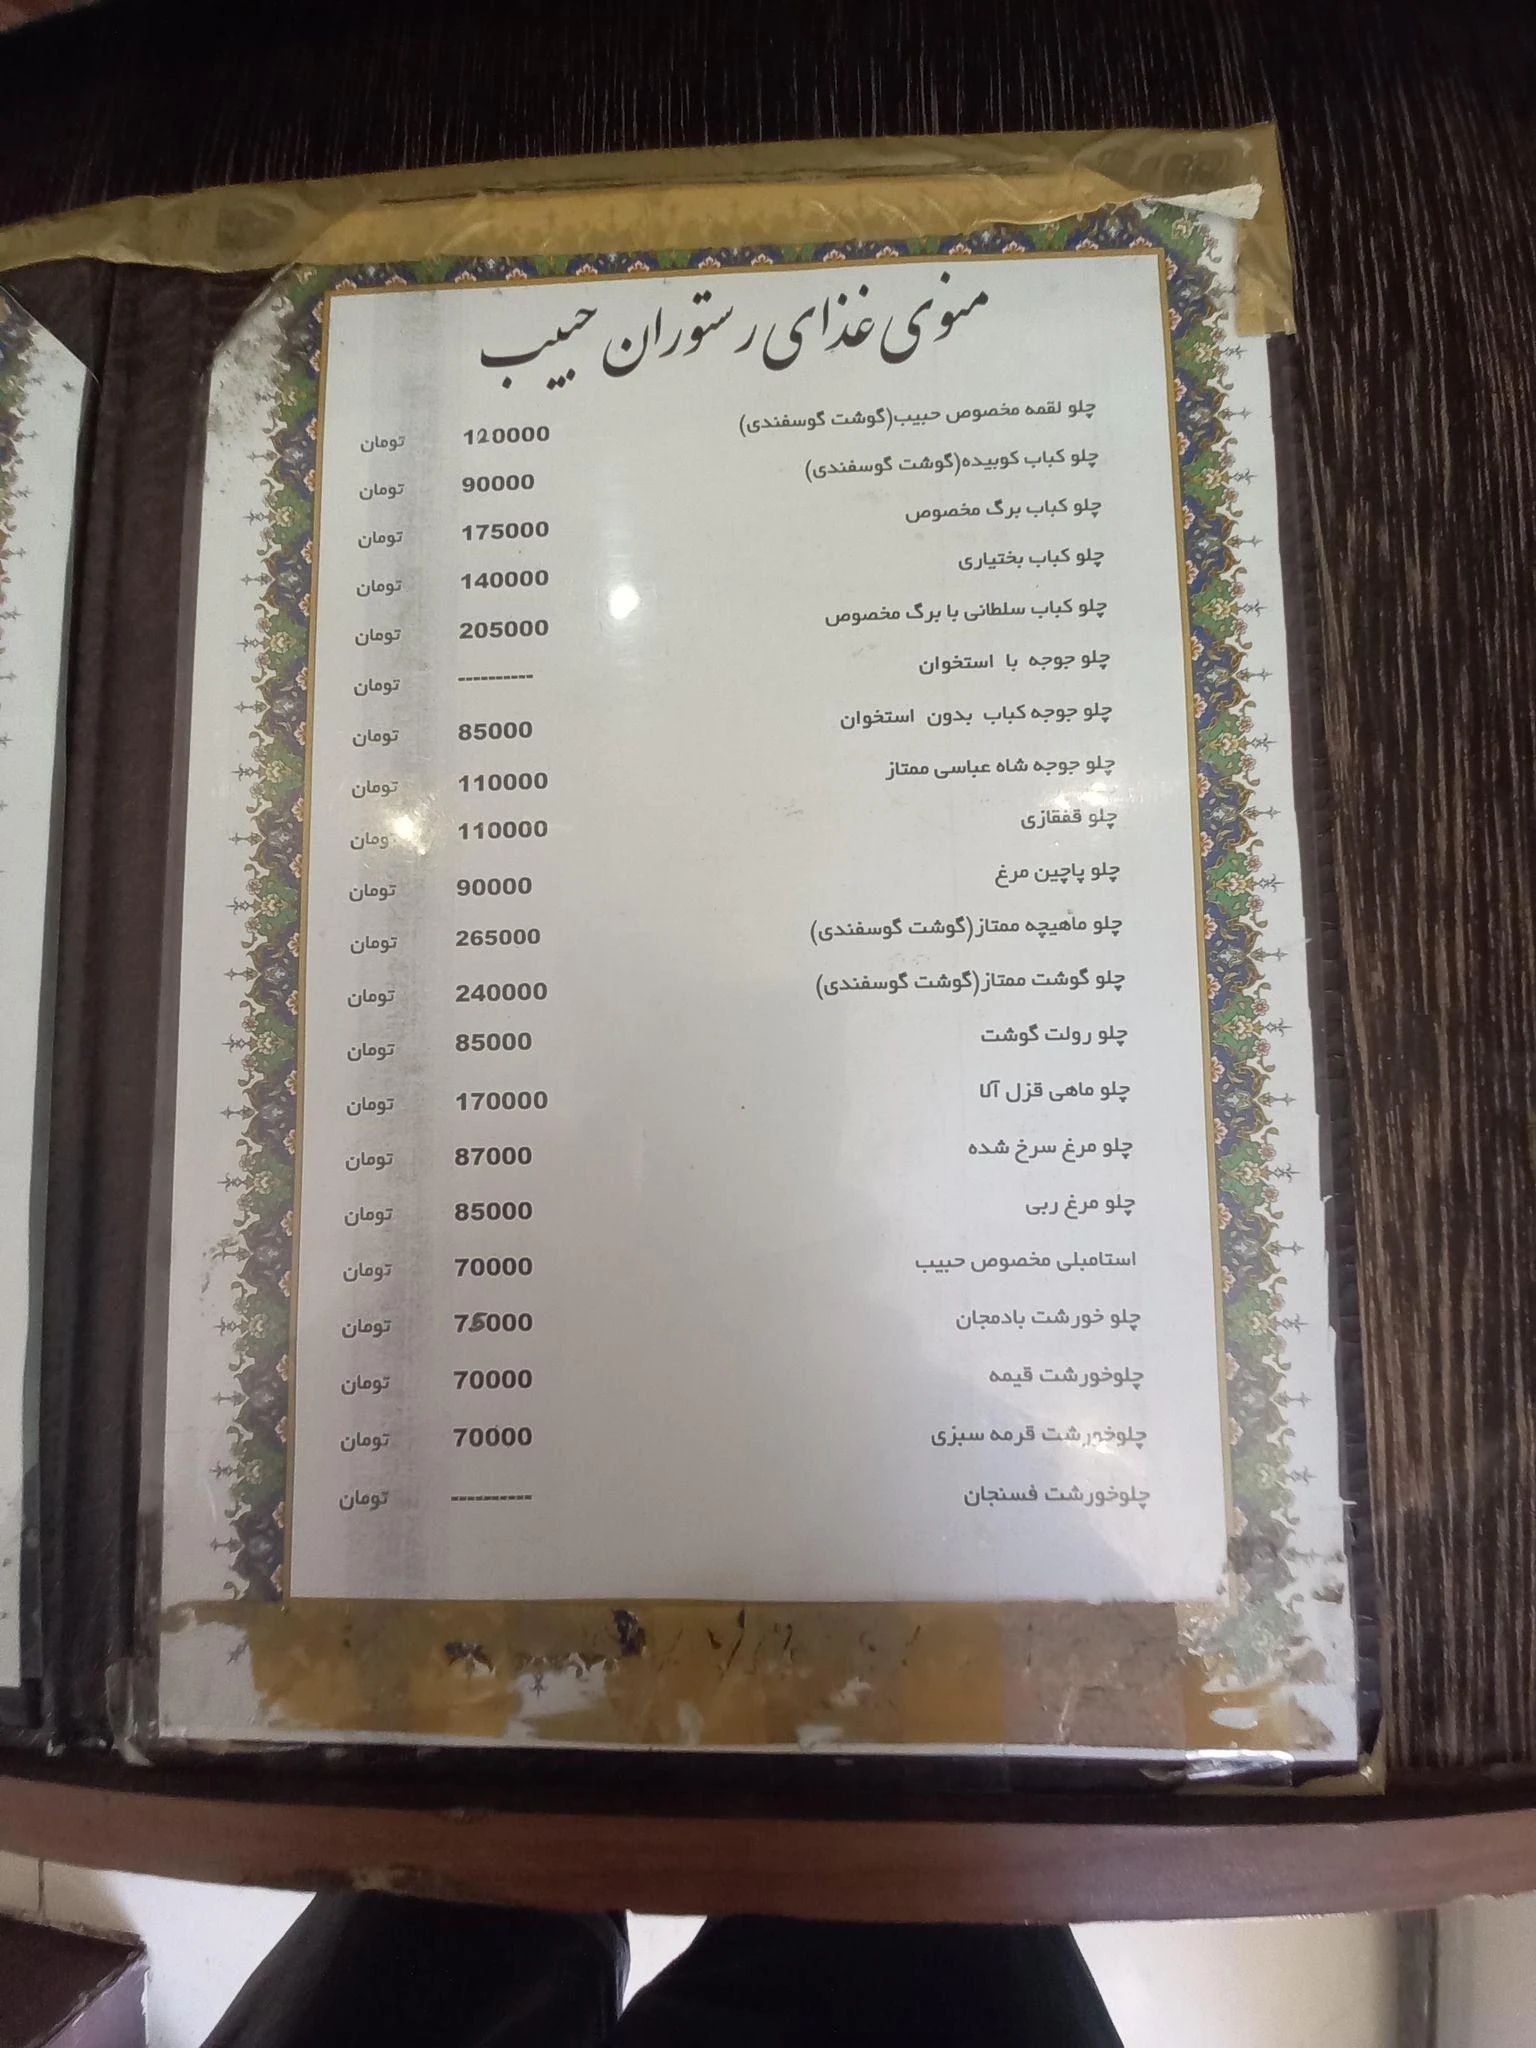 منوی غذای رستوران حبیب
چلو لقمه مخصوص حبیب(گوشت گوسفندی) 120000 تومان
چلو کباب کوبیده(گوشت گوسفندی) 90000 تومان
چلو کباب برگ مخصوص 175000 تومان
چلو کباب بختیاری 140000 تومان
چلو کباب سلطانی با برگ مخصوص 205000 تومان
چلو جوجه با استخوان ---------- تومان
چلو جوجه کباب بدون استخوان 85000 تومان
چلو جوجه شاه عباسی ممتاز 110000 تومان
چلو قفقازی 110000 تومان
چلو پاچین مرغ 90000 تومان
چلو ماهیچه ممتاز(گوشت گوسفندی) 265000 تومان
چلو گوشت ممتاز(گوشت گوسفندی) 240000 تومان
چلو رولت گوشت 85000 تومان
چلو ماهی قزل آلا 170000 تومان
چلو مرغ سرخ شده 87000 تومان
چلو مرغ ربی 85000 تومان
استامبلی مخصوص حبیب 70000 تومان
چلو خورشت بادمجان 75000 تومان
چلوخورشت قیمه 70000 تومان
چلوخورشت قرمه سبزی 70000 تومان
چلوخورشت فسنجان ---------- تومان